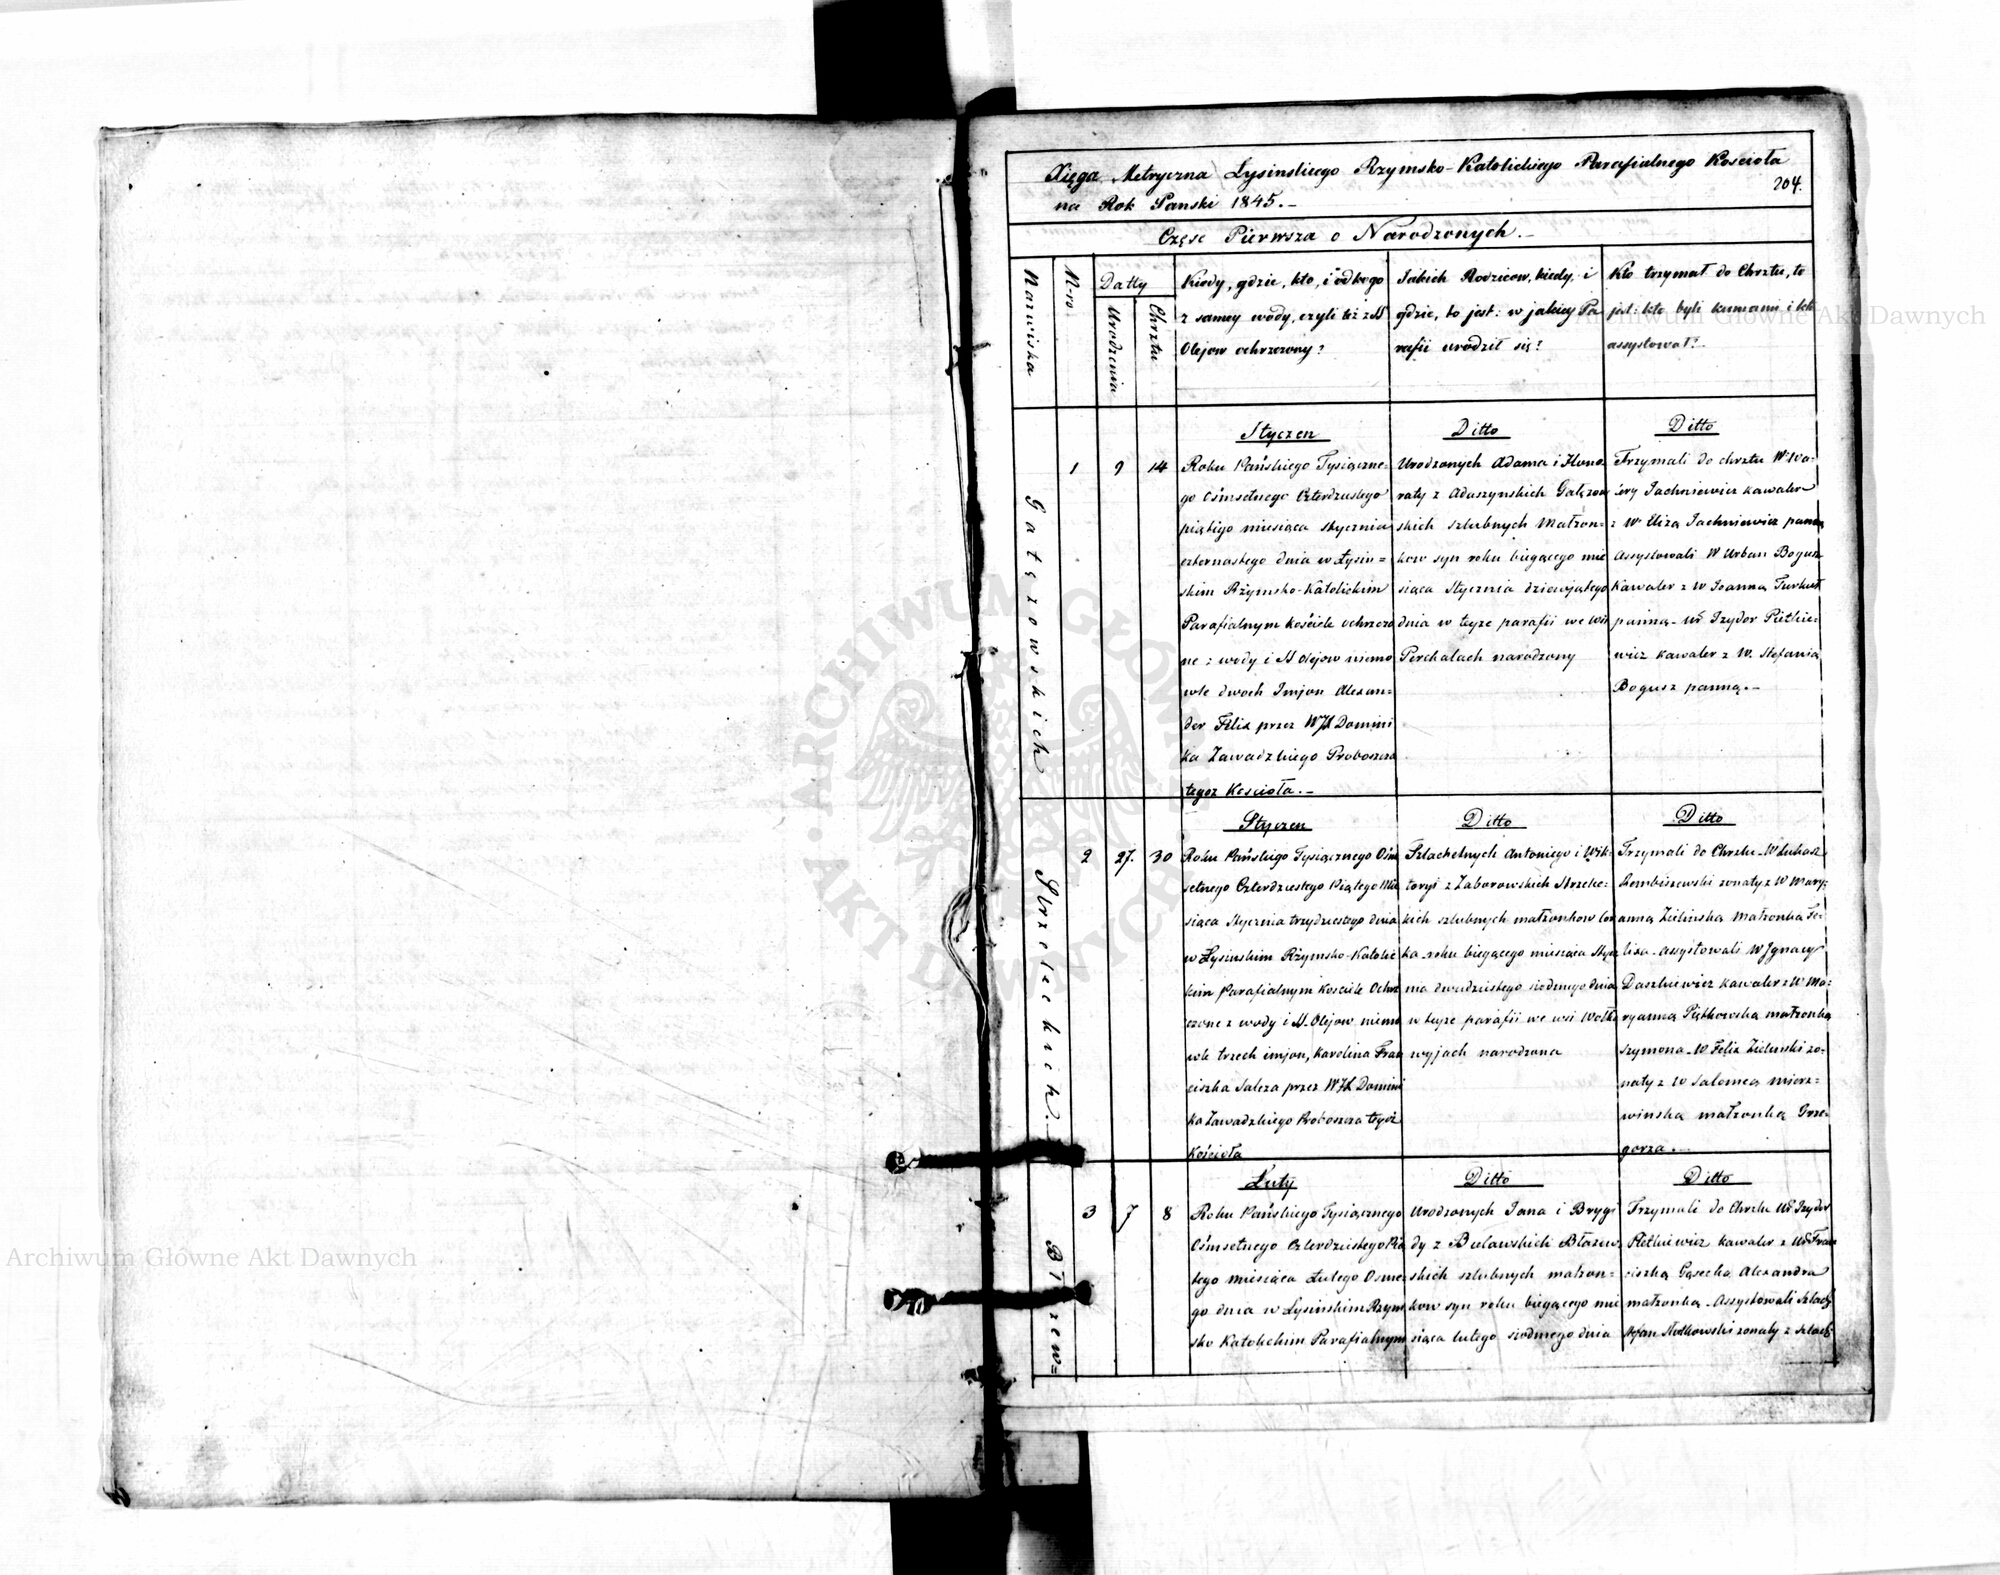 Xięga Metryczna Łysinskiego Rzymsko-Katolickiego Parafialnego Kościoła
204.
na Rok Panski 1845.-
Częsc Pierwsza o Narodzonych.-
Nazwiska
N-ro
Datty
Urodzenia
Chrztu
Kiedy, gdzie, kto, i odkogo
z samey wody, czyli też z SS
Olejow ochrzczony?
Jakich Rodzicow, kiedy, i
gdzie, to jest: w jakiey Pa
rafii urodził się?
Kto trzymał do Chrztu, to
jest: kto byli kumami i kto
assystował?
Gałęzowskich
1
9
14
Styczen
Roku Pańskiego Tysiączne=
go Ośmsetnego Czterdziestego
piątego miesiąca stycznia
czternastego dnia w Łysin=
skim Rzymsko-Katolickim
Parafialnym Kościele ochrzczo
ne z wody i SS Olejow niemo
wle dwoch Imjon Alexan=
der Felix przez WJX Domini
ka Zawadzkiego Proboszcza
tegoz Kościoła.-
Ditto
Urodzonych Adama i Hono
raty z Adaszynskich Gałęzow
skich szlubnych Małzon=
kow syn roku biegącego mie
siąca Stycznia dziewjątego
dnia w teyze parafii we wsi
Perchalach narodzony
Ditto
Trzymali do chrztu W: Wa=
lery Jachniewicz kawaler
z W Elizą Jachniewicz panną
Assystowali W Urban Bogusz
kawaler z W Joanną Turkuł
panną- Ur Izydor Pietkie=
wicz kawaler z W. Stefanią
Bogusz panną.-
Strzeleckich
2
27.
30
Styczen
Roku Pańskigo Tysiącznego Ośm
setnego Czterdziestego Piątego Mie
siąca Stycznia trzydziestego dnia
w Łysinskim Rzymsko-Katolic
kim Parafialnym Kosciele Ochrz
czone z wody i SS. Olejow niemo
wle trzech imjon, Karolina Fran
ciszka Saleza przez WJX Domini
ka Zawadzkiego Proboszcza tegoż
Kościoła
Ditto
Szlachetnych Antoniego i Wik=
toryi z Zaborowskich Strzelec=
kich szlubnych małżonkow Cor
ka-roku biegącego miesiąca Stycz
nia dwudziestego siodmego dnia
w teyze parafii we wsi Wołko
wyjach narodzona
Ditto
Trzymali do Chrztu-W Łukasz
Rembiszewski zonaty z W Mary=
anną Zielinską Małzonką Fe=
lixa-Assystowali W Jgnacy
Daszkiewicz kawaler z W Ma=
ryanną Piątkowską małzonką
Szymona-W Felix Zielinski zo=
naty z W Salomeą mierz=
winską małzonką Grze=
gorza.-
Błazew=
3
7
8
Luty
Roku Pańskiego Tysiącznego
Ośmsetnego Czterdziestego Pią
tego miesiąca Lutego Osme
go dnia w Łysinskim Rzym
sko Katolickim Parafialnym
Ditto
Urodzonych Jana i Brygi
dy z Bielawskich Błazew
skich szlubnych małzon=
kow syn roku biegącego mie
siąca lutego siodmego dnia
Ditto
Trzymali do Chrztu Ur Izydor
Pietkiewicz kawaler z Ur Fran
ciszką Gąsecką Alexandra
małzonką-Assystowali Szlach
Stefan Słotkowski zonaty z Szlach
Archiwum Główne Akt Dawnych
Archiwum Główne Akt Dawnych
ARCHIWUM GŁÓWNE AKT DAWNYCH